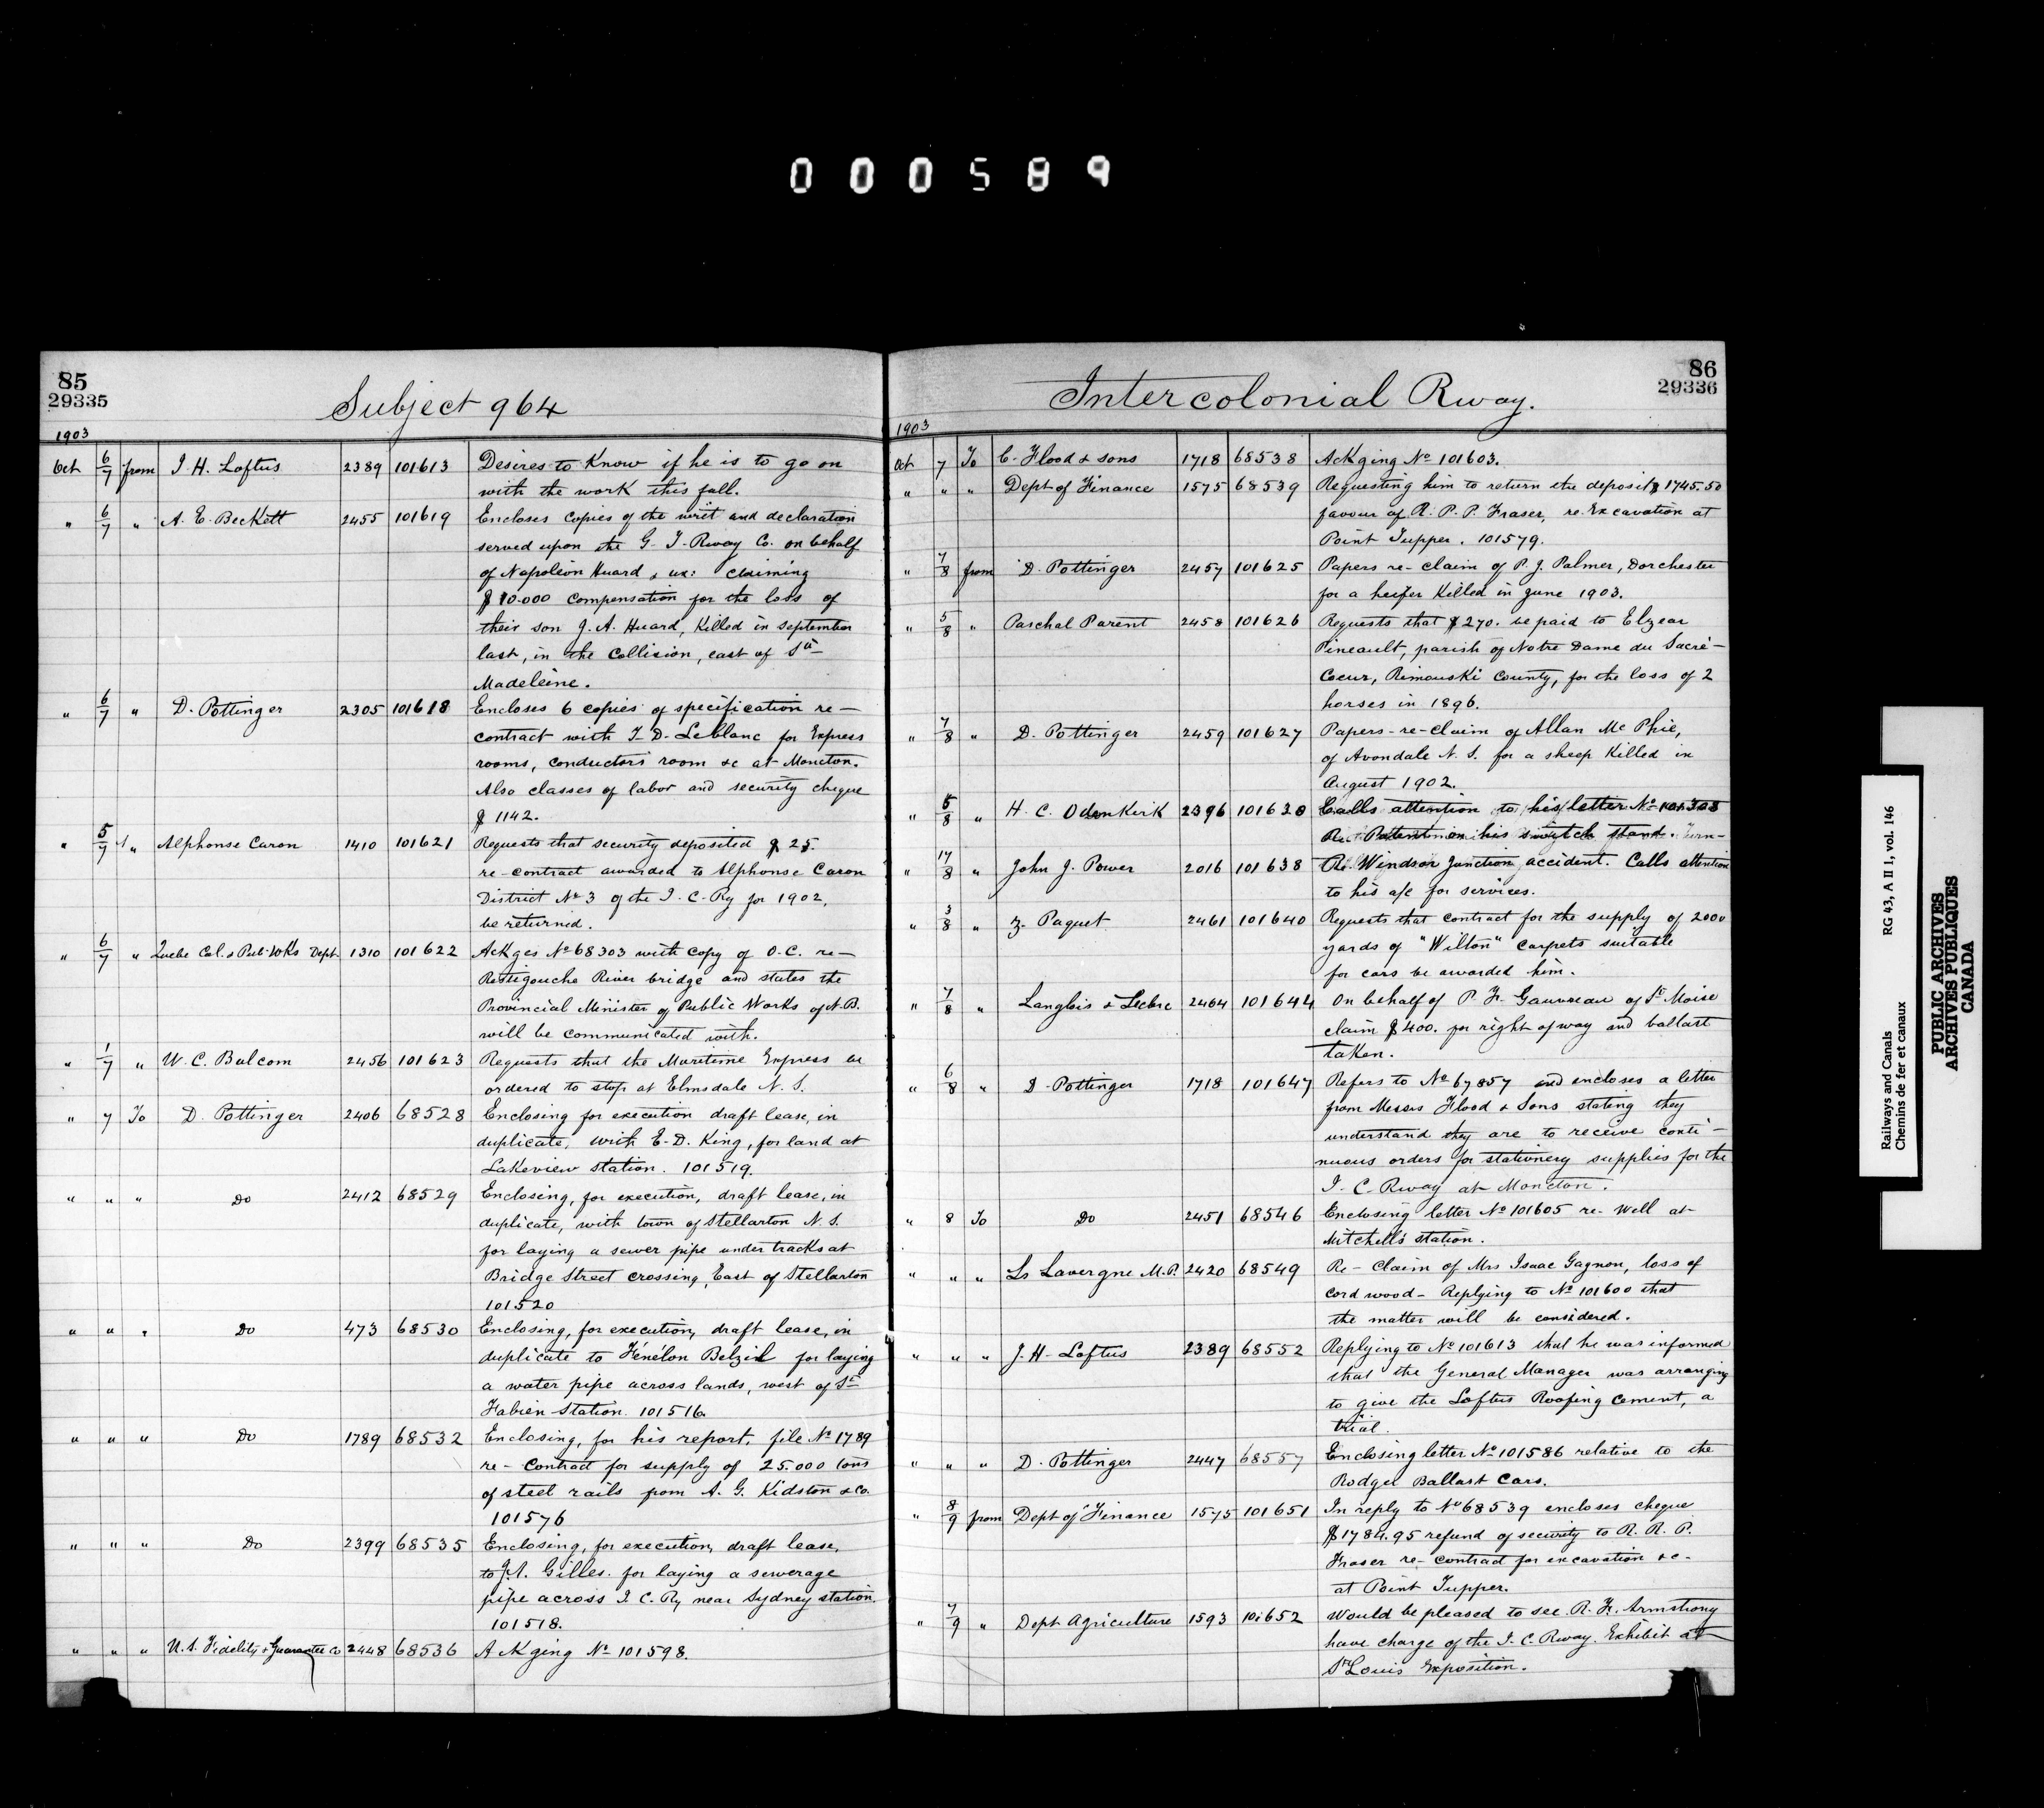 000589
85
29335
Subject 964
1903
Oct 6/7 from J. H. Loftus 2389 101613 Desires to Know if he is to go on
with the work this fall.
" 6/7 " A. E. Beckett 2455 101619 Encloses Copies of the writ and declaration
served upon the G. T. Rway Co. on behalf
of Napoléon Huard & ux: claiming
$10.000 compensation for the loss of
their son J. A. Huard, Killed in september
last, in the Collision, east of Ste
Madeleine.
" 6/7 " D. Pottinger 2305 101618 Encloses 6 copies of specification re-
contract with T. D. Leblanc for Express
rooms, conductors room &c at Moncton.
Also classes of labor and security cheque
$ 1142.
" 5/7 " Alphonse Caron 1410 101621 Requests that security deposited $ 25.
re-contract awarded to Alphonse Caron
District No 3 of the I. C. Ry for 1902,
be returned.
" 6/7 " Quebc Col. & Pub. Wks Dept 1310 101622 Ackges No 68303 with copy of O.C. re-
Restigouche River bridge and states the
Provincial Minister of Public Works of N.B.
will be communicated with.
" 1/7 " W. C. Balcom 2456 101623 Requests that the Maritime Express be
ordered to stop at Elmsdale N. S.
" 7 To D. Pottinger 2406 68528 Enclosing for execution draft lease, in
duplicate, with E. D. King, for land at
Lakeview station. 101519.
" " " Do 2412 68529 Enclosing, for execution, draft lease, in
duplicate, with town of Stellarton N. S.
for laying a sewer pipe under tracks at
Bridge Street crossing, East of Stellarton
101520
" " " Do 473 68530 Enclosing, for execution, draft lease, in
duplicate to Fénélon Belzil for laying
a water pipe across lands, west of St
Fabien Station. 101516.
" " " Do 1789 68532 Enclosing, for his report, file No 1789
re- Contract for supply of 25.000 tons
of steel rails from A. G. Kidston & Co.
101576
" " " Do 2399 68535 Enclosing, for execution, draft lease,
to J. A. Gilles. for laying a sewerage
pipe across I. C. Ry near Sydney station.
101518.
" " " U. S. Fidelity & Guarantee Co 2448 68536 Ackging No 101598.
86
29336
Intercolonial Rway.
1903
Oct 7 To C. Flood & sons 1718 68538 Ackging No 101603.
" " " Dept of Finance 1575 68539 Requesting him to return the deposit $ 1745.50
favour of R. P. P. Fraser, re. Excavation at
Point Tupper. 101579.
" 7/8 from D. Pottinger 2457 101625 Papers re-claim of P. J. Palmer, Dorchester
for a heifer Killed in June 1903.
" 5/8 " Paschal Parent 2458 101626 Requests that $270. be paid to Elzear
Pineault, parish of Notre Dame du Sacré-
Coeur, Rimouski County, for the loss of 2
horses in 1896.
" 7/8 " D. Pottinger 2459 101627 Papers-re-claim of Allan McPhie,
of Avondale N. S. for a sheep Killed in
August 1902.
" 5/8 " H. C. Odenkirk 2396 101630 Calls attention to his letter No
Re. Patent on his switch stand.
" 17/8 " John J. Power 2016 101638 Re. Windsor Junction accident. Calls attention
to his a/c for services.
" 3/8 " Z. Paquet 2461 101640 Requests that contract for the supply of 2000
yards of "Wilton" carpets suitable
for cars be awarded him.
" 7/8 " Langlois & Leclerc 2464 101644 On behalf of P. F. Gauvreau of St Moise
claim $400. for right of way and ballast
taken.
" 6/8 " D. Pottinger 1718 101647 Refers to No 67857 and encloses a letter
from Messrs Flood & Sons stating they
understand they are to receive conti-
nuous orders for stationery supplies for the
I. C. Rway at Moncton.
" 8 To Do 2451 68546 Enclosing letter No 101605 re- Well at
Mitchell's station.
" " " Ls Lavergne M.P. 2420 68549 Re- Claim of Mrs Isaac Gagnon, loss of
cord wood- Replying to No 101600 that
the matter will be considered.
" " " J. H. Loftus 2389 68552 Replying to No 101613 that he was informed
that the General Manager was arranging
to give the Loftus Roofing Cement, a
trial.
" " " D. Pottinger 2447 68557 Enclosing letter No 101586 relative to the
Rodger Ballast Cars.
" 8/9 from Dept of Finance 1575 101651 In reply to No 68539 encloses cheque
$1784.95 refund of security to R. R. P.
Fraser re- contract for excavation &c-
at Point Tupper.
" 7/9 " Dept Agriculture 1593 101652 Would be pleased to see R. F. Armstrong
have charge of the I. C. Rway. Exhibit at
St Louis Exposition.
Railways and Canals
Chemins de fer et canaux
RG 43, A II 1, vol. 146
PUBLIC ARCHIVES
ARCHIVES PUBLIQUES
CANADA